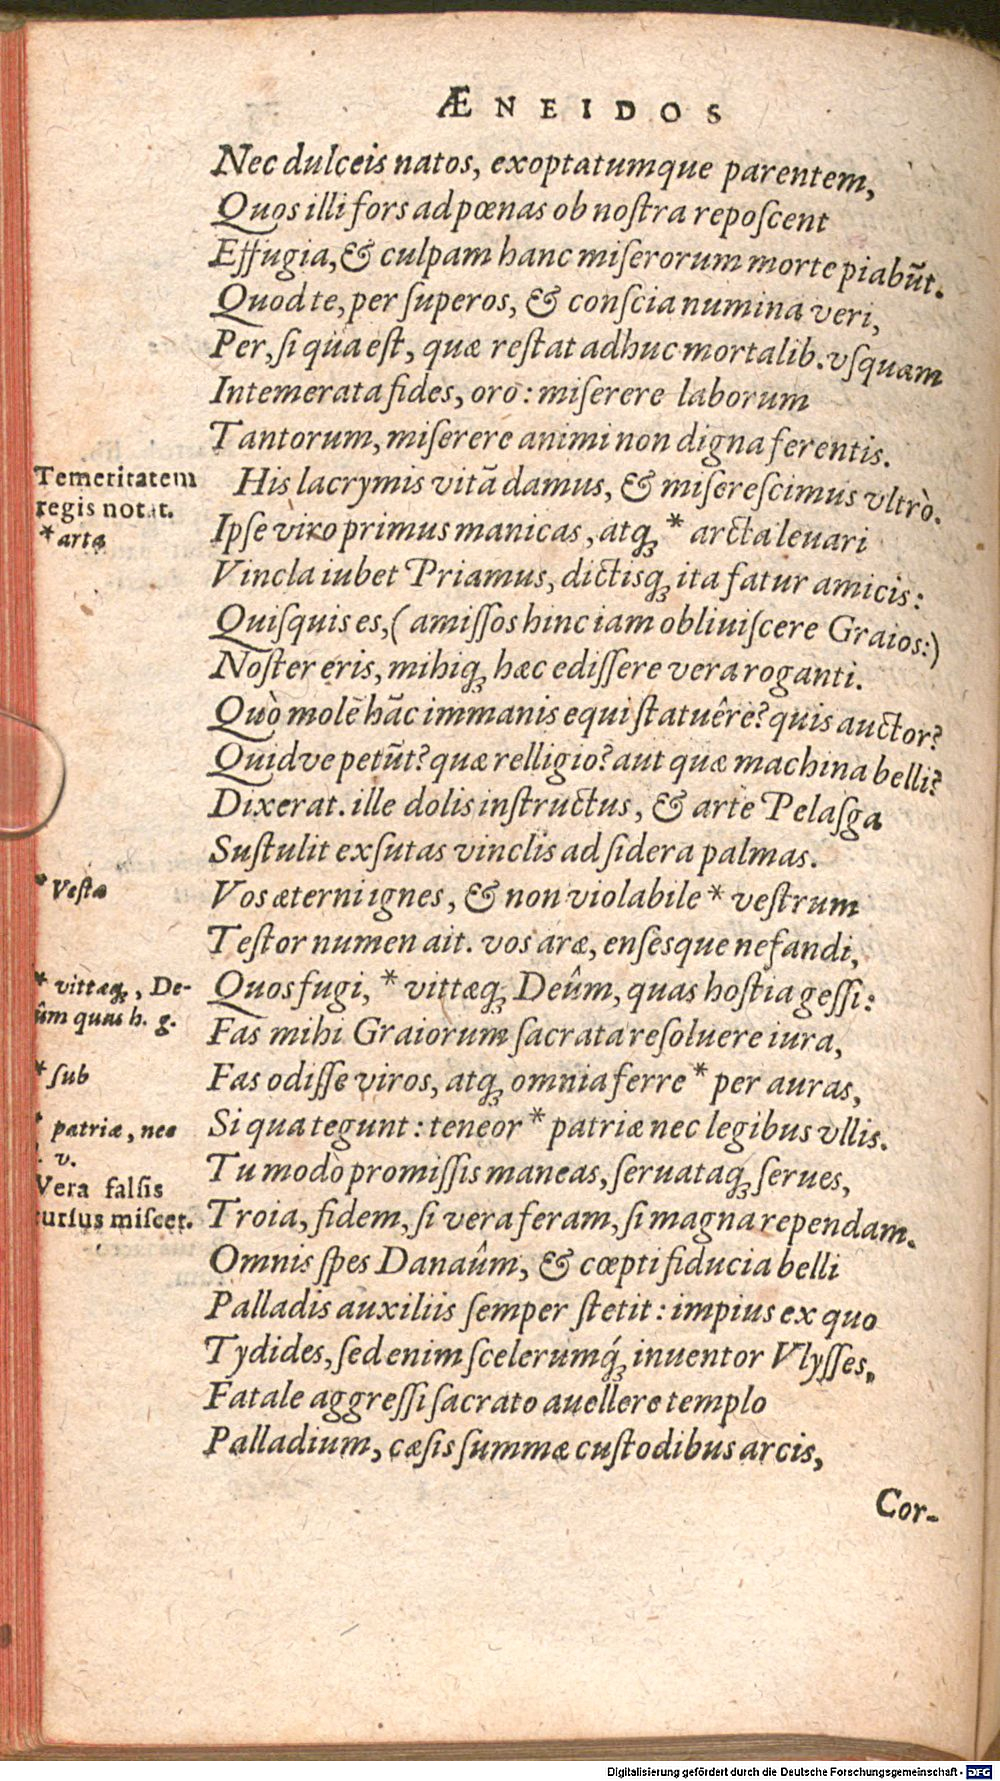 ÆNEIDOS
Nec dulceis natos, exoptatumque parentem,
Quos illi fors ad pœnas ob noſtra repoſcent
Effugia, & culpam hanc miſerorum morte piabūt.
Quod te, per ſuperos, & conſcia numina veri,
Per, ſi qua eſt, quæ reſtat adhuc mortalib. vſquam
Intemerata fides, oro: miſerere laborum
Tantorum, miſerere animi non digna ferentis.
Temeritatem
regis notat.
His lacrymis vitā damus, & miſereſcimus vltrò.
* arta
Ipſe viro primus manicas, atq; * arcta leuari
Vincla iubet Priamus, dictisq; ita fatur amicis:
Quiſquis es, (amiſſos hinc iam obliuiſcere Graios:)
Noſter eris, mihiq; hæc ediſſere vera roganti.
Quò molē hāc immanis equi ſtatuêre? quis auctor?
Quidve petūt? quæ relligio? aut quæ machina belli?
Dixerat. ille dolis inſtructus, & arte Pelaſga
Suſtulit exſutas vinclis ad ſidera palmas.
* Veſtæ
Vos æterni ignes, & non violabile * veſtrum
Teſtor numen ait. vos aræ, enſesque nefandi,
* vittæq;, De-
ûm quas h. g.
Quos fugi, * vittæq; Deûm, quas hoſtia geſſi:
Fas mihi Graiorum ſacrata reſoluere iura,
* ſub
Fas odiſſe viros, atq; omnia ferre * per auras,
* patriæ, nec
l. v.
Si qua tegunt: teneor * patriæ nec legibus vllis.
Vera falſis
rurſus miſcet.
Tu modo promiſſis maneas, ſeruataq; ſerues,
Troia, fidem, ſi vera feram, ſi magna rependam.
Omnis ſpes Danaûm, & cœpti fiducia belli
Palladis auxiliis ſemper ſtetit: impius ex quo
Tydides, ſed enim ſcelerumq́; inuentor Vlyſſes,
Fatale aggreſſi ſacrato auellere templo
Palladium, cæſis ſummæ cuſtodibus arcis,
Cor-
Digitalisierung gefördert durch die Deutsche Forschungsgemeinschaft - DFG